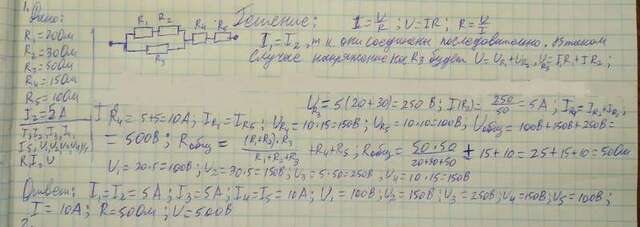 1.
Дано:
R₁=20Ом
R₂=30Ом
R₃=50Ом
R₄=15Ом
R₅=10Ом
I₂=5А
I₁, I₃, I₄,
I₅, U₁, U₂, U₃, U₄, U₅,
R, I, U
R₁ R₂ R₄ R₅
R₃
Решение: I=U/R; U=IR; R=U/I
I₁=I₂, т.к они соединены последовательно. В таком
случае напряжение на R₃ будет U=U_R₁+U_R₂, U_R₃=I₁R₁+IR₂;
U_R₃=5(20+30)=250В; I(R₃)=250/50=5А; I_R₄=I_R₃+I_R₁;
I_R₄=5+5=10А; I_R₄=I_R₅; U_R₄=10·15=150В; U_R₅=10·10=100В; Uобщ=100В+150В+250В=
=500В; Rобщ=(R₁+R₂)·R₃/R₁+R₂+R₃+R₄+R₅; Rобщ=50·50/20+30+50+15+10=25+15+10=50Ом
U₁=20·5=100В; U₂=30·5=150В; U₃=5·50=250В, U₄=10·15=150В
Ответ: I₁=I₂=5А; I₃=5А; I₄=I₅=10А; U₁=100В; U₂=150В; U₃=250В; U₄=150В; U₅=100В;
I=10А; R=50Ом; U=500В
2.